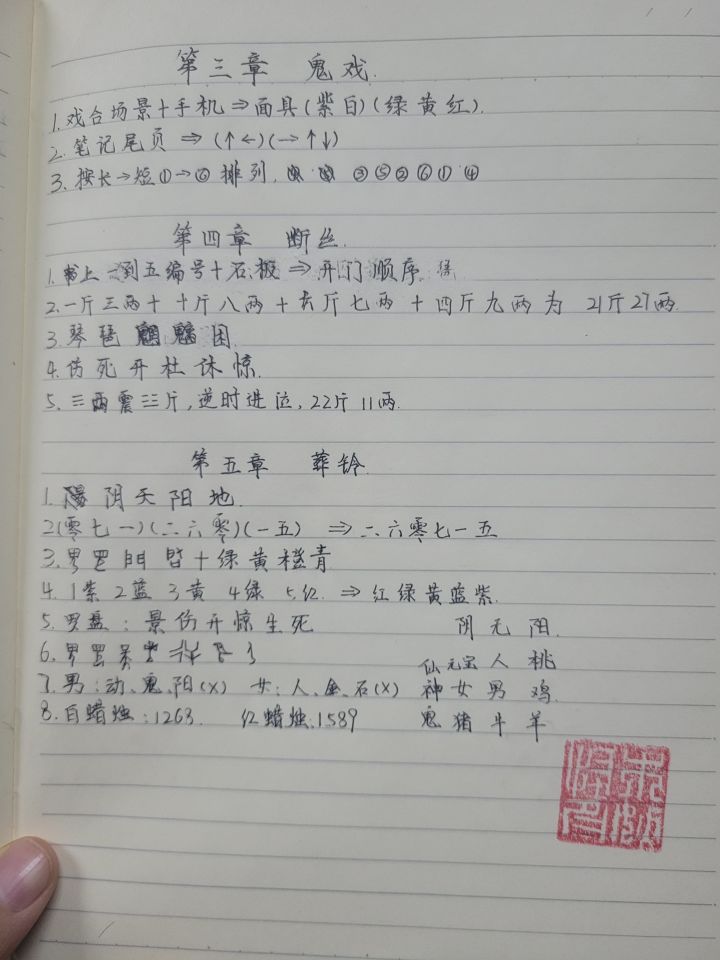 第三章 鬼戏.
1.戏台场景+手机⇒面具(紫白)(绿黄红).
2.笔记尾页 ⇒ (↑←)(→↑↓)
3.按长→短①→⑥排列. ③⑤②⑥①④
第四章 断丝.
1.书上一到五编号+石板⇒开门顺序.
2.一斤三两+十斤八两+六斤七两+四斤九两为 21斤27两.
3.琴琶 困.
4.伤死开杜休惊.
5.三两震三斤,逆时进位,22斤11两.
第五章 葬铃.
1.阴天阳地.
2(零七一)(二六零)(一五) ⇒二六零七一五
3. +绿黄橙青
4.1紫2蓝3黄4绿5红.⇒红绿黄蓝紫.
5.罗盘:景伤开惊生死 阴无阳.
6. 仙元宝人桃
7.男:动、鬼、阳(X) 女:人、金、石(X) 神女男鸡.
8.白蜡烛:1263. 红蜡烛:1589 鬼猪牛羊